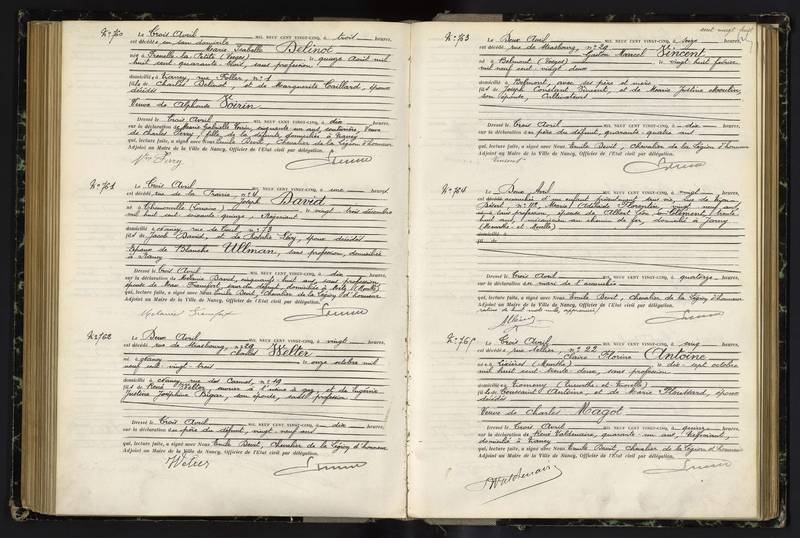 N° 760 Le Trois Avril MIL NEUF CENT VINGT-CINQ, à trois heures,
est décédée en son domicile Marie Isabelle Delinot
née à Frenelle-la-Petite (Vosges) le quinze Août mil
huit cent quarante- sans profession
domiciliée à Nancy, rue n° 1
fille de Charles Delinot, et de Marguerite Gaillard, époux
décédés
Veuve de Alphonse Voirin
Dressé le Trois Avril MIL NEUF CENT VINGT-CINQ, à dix heures,
sur la déclaration de Marie Gabrielle Voirin, cinquante un ans, couturière, Veuve
de Charles Ferry, fille de la défunte domiciliée à Nancy
qui, lecture faite, a signé avec Nous Emile Devit, Chevalier de la Légion d'honneur
Adjoint au Maire de la Ville de Nancy, Officier de l'Etat civil par délégation.
Vve Ferry
N° 761 Le Trois Avril MIL NEUF CENT VINGT-CINQ, à une heure
est décédé, rue de la Prairie n° 4 Joseph David
né à (Lorraine) le vingt trois décembre
mil huit cent soixante-quinze, Négociant
domicilié à Nancy, rue de Toul, n° 73
fils de Jacob David, et de Sophie Lévy, époux décédés
Epoux de Blanche Ullman, sans profession, domiciliée
à Nancy
Dressé le Trois Avril MIL NEUF CENT VINGT-CINQ, à dix heures,
sur la déclaration de Mélanie David, cinquante huit ans, sans profession
épouse de Max Francfort, sœur du défunt, domiciliée à Metz (Moselle)
qui, lecture faite, a signé avec Nous Emile Devit, Chevalier de la Légion d'honneur
Adjoint au Maire de la Ville de Nancy, Officier de l'Etat civil par délégation.
N° 762 Le Deux Avril MIL NEUF CENT VINGT-CINQ, à vingt heures,
est décédé, rue de Strasbourg, n° 29 Charles Welter
né à Nancy le onze octobre mil
neuf cent vingt-trois
domicilié à Nancy, rue des Carmes, n° 19
fils de René Welter, ouvrier à l'usine à gaz, et de Eugénie
Justine Joséphine Bigar, son épouse, sans profession
Dressé le Trois Avril MIL NEUF CENT VINGT-CINQ, à dix heures,
sur la déclaration du père du défunt, vingt-neuf ans
qui, lecture faite, a signé avec Nous Emile Devit, Chevalier de la Légion d'honneur
Adjoint au Maire de la Ville de Nancy, Officier de l'Etat civil par délégation.
Welter
cent vingt huit
N° 763 Le Deux Avril MIL NEUF CENT VINGT-CINQ, à onze heures,
est décédé, rue de Strasbourg, n° 29 Gaston Marcel Vincent
né à Belmont (Vosges) le vingt huit février
mil neuf cent vingt deux
domicilié à Belmont, avec ses père et mère
fils de Joseph Constant Vincent, et de Marie Justine Moulin,
son épouse, Cultivateurs
Dressé le Trois Avril MIL NEUF CENT VINGT-CINQ, à dix heures,
sur la déclaration du père du défunt, quarante-quatre ans
qui, lecture faite, a signé avec Nous Emile Devit, Chevalier de la Légion d'honneur
Adjoint au Maire de la Ville de Nancy, Officier de l'Etat civil par délégation.
Vincent
N° 764 Le Deux Avril MIL NEUF CENT VINGT-CINQ, à vingt heures,
est décédé accouchée d'un enfant présentement sans vie, rue de
n° Maria Adélaïde Florentin, vingt neuf ans
sans profession, épouse de Albert Léon Clément, trente
huit ans, mécanicien au chemin de fer, domicilié à Jarny
(Meurthe-et-Moselle)
domicilié à
fil de
Dressé le Trois Avril MIL NEUF CENT VINGT-CINQ, à quatorze heures,
sur la déclaration du mari de l'accouchée
qui, lecture faite, a signé avec Nous Emile Devit, Chevalier de la Légion d'honneur
Adjoint au Maire de la Ville de Nancy, Officier de l'Etat civil par délégation.
N° 765 Le Trois Avril MIL NEUF CENT VINGT-CINQ, à cinq heures,
est décédée, rue n° 22 Claire Florine Antoine
née à Lixières (Meurthe) le dix-sept octobre
mil huit cent trente-deux, sans profession
domiciliée à Pommeny (Meurthe et Moselle)
fille de Toussaint Antoine, et de Marie époux
décédés
Veuve de Charles Magot
Dressé le Trois Avril MIL NEUF CENT VINGT-CINQ, à quinze heures,
sur la déclaration de René Valdenaire, quarante-un ans,
domicilié à Nancy
qui, lecture faite, a signé avec Nous Emile Devit, Chevalier de la Légion d'honneur
Adjoint au Maire de la Ville de Nancy, Officier de l'Etat civil par délégation.